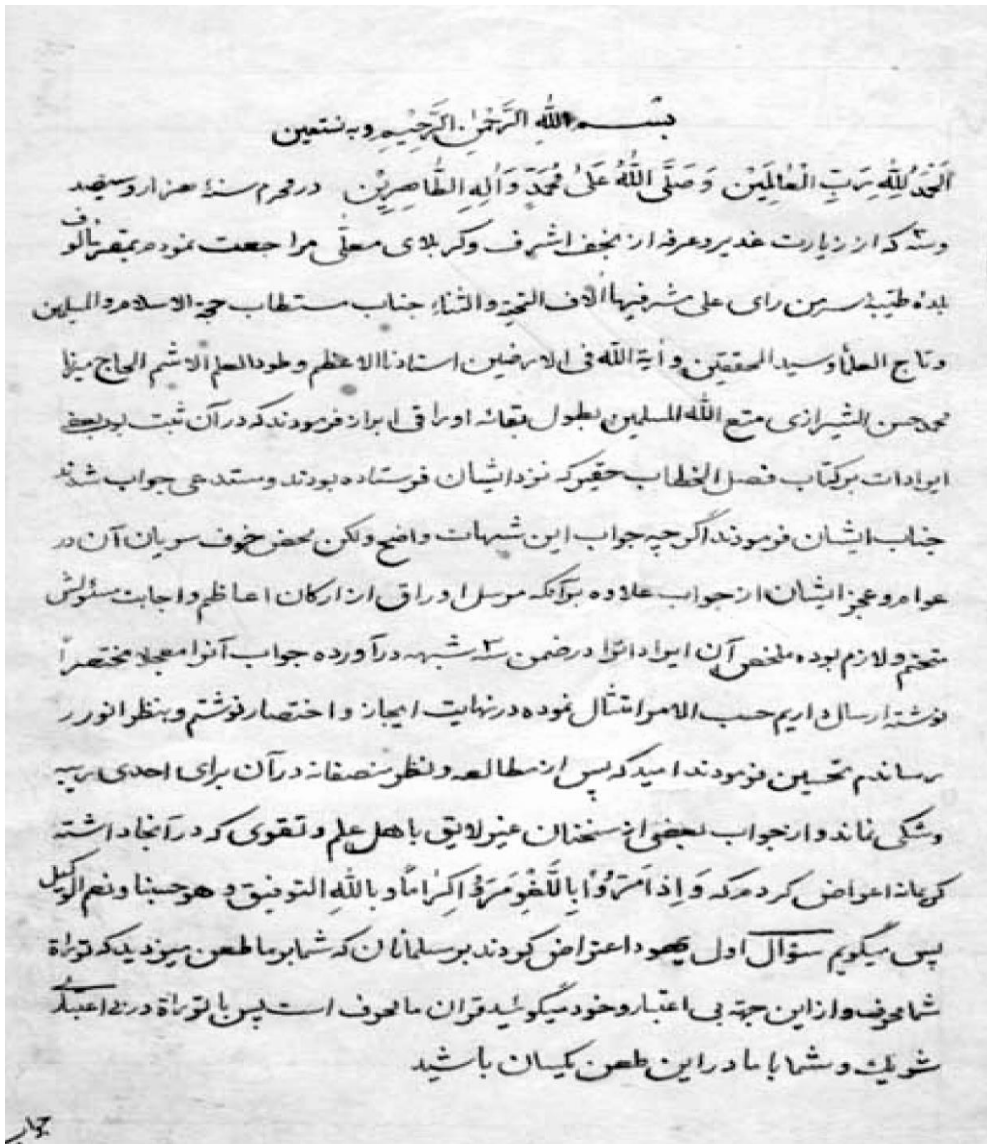 بسم الله الرَّحْمٰنِ الرَّحِيمِ وبه نستعین
اَلْحَمْدُ لِلّٰهِ رَبِّ الْعٰالَمِیْنَ وَصَلَّی اللّٰهُ عَلیٰ مُحَمَّدٍ وَاٰلِهِ الطّٰاهِرِیْنَ در محرم سنهٔ هزار و سیصد
و سه که از زیارت غدیر و عرفه از نجف اشرف و کربلای معلّی مراجعت نموده بمقر مألوف
بلدهٔ طیّبهٔ سر من رای علی مشرفیها آلاف التحیّة والثناء جناب مستطاب حجة الاسلام والمسلمین
وتاج العلماء وسید المحققین وآیة الله فی الارضین استادنا الاعظم وطود العلم الاشم الحاج میرزا
محمد حسن الشیرازی متع الله المسلمین بطول بقائه اوراقی ابراز فرمودند که در آن ثبت بود بعض
ایرادات بر کتاب فصل الخطاب حقیر که نزد ایشان فرستاده بودند و مستدعی جواب شدند
جناب ایشان فرمودند اگر چه جواب این شبهات واضح ولکن محض خوف سریان آن در
عوام و عجز ایشان از جواب علاوه بر آنکه مرسل اوراق از ارکان اعاظم و اجابت مسئولش
متحتم و لازم بوده ملخص آن ایرادات را در ضمن سه شبهه درآورده جواب آنرا معجلا مختصراً
نوشته ارسال داریم حسب الامر امتثال نموده در نهایت ایجاز و اختصار نوشتم و بنظر انور
رساندم تحسین فرمودند امید که پس از مطالعه و نظر منصفانه در آن برای احدی ریب
و شکی نماند و از جواب بعضی از سخنان غیر لایق باهل علم و تقوی که در آنجا داشته
کریمانه اعراض کردم که وَاِذٰا مَرُّوْا بِاللَّغْوِ مَرُّوْا کِرٰاماً وباللهِ التوفیق وهو حسبنا ونعم الوکیل
پس میگویم سؤال اول یهود اعتراض کردند بر مسلمانان که شما بر ما طعن میزدید که توراة
شما محرف و از این جهة بی اعتبار و خود میگوئید قرآن ما محرف است پس با توراة در بی اعتباری
شریک و شما با ما در این طعن یکسان باشید
جواب